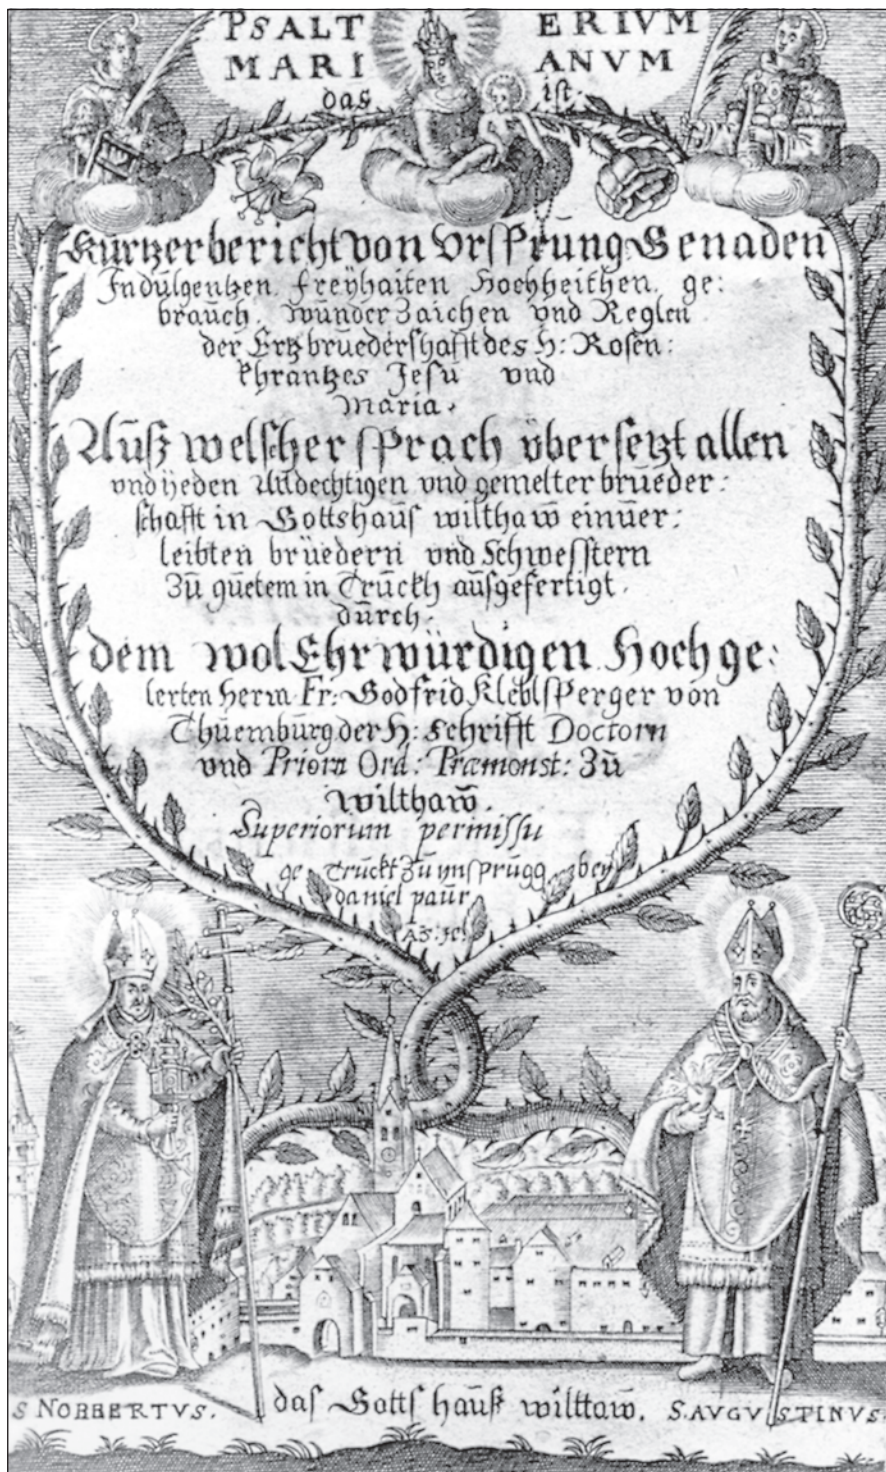 PSALTERIVM
MARIANVM
das ist.
Kurtzer bericht von Vrsprūng Genaden
Jndūlgentzen freÿhaiten Hochheithen ge:
braūch. wūnder Zaichen vnd Reglen
der Ertzbrūederschafft des H: Rosen:
khrantzes Jesu vnd
Maria.
Aūß welscher sprach übersetzt allen
vnd ÿeden Andechtigen vnd gemelter brūeder:
schafft in Gottshaūs wilthaw̄ einūer:
leibten brüedern vnd Schwesstern
Zū gūetem in Trūckh aūsgefertigt.
dūrch.
dem wolEhrwürdigen Hochge:
lerten Herrn Fr: Godfrid Kleblsperger von
Thūembūrg der H: Schrifft Doctorn
vnd Priorn Ord: Præmonst: Zū
wilthaw̄.
Superiorum permissu
ge Trūckt Zū ynsprūgg bey
daniel paūr.
S NORBERTVS.
das Gotts haūß wilttaw̄.
S.AVGVSTINVS.